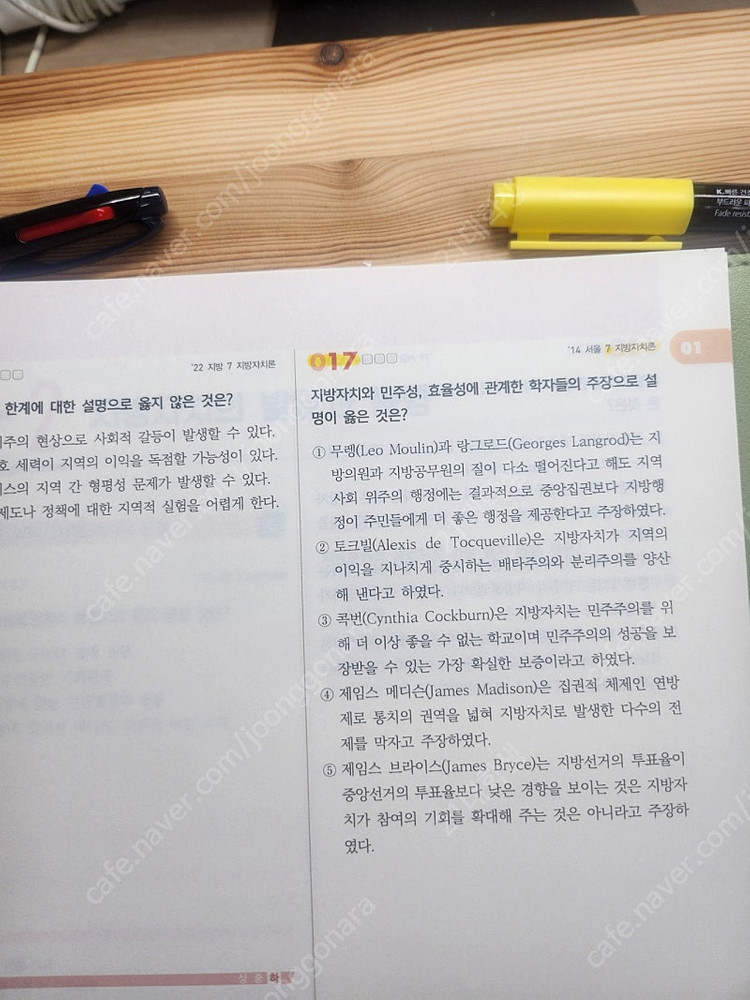 K.빠른 건조
Fade resist
'22 지방 7 지방자치론
한계에 대한 설명으로 옳지 않은 것은?
위주의 현상으로 사회적 갈등이 발생할 수 있다.
호 세력이 지역의 이익을 독점할 가능성이 있다.
비스의 지역 간 형평성 문제가 발생할 수 있다.
제도나 정책에 대한 지역적 실험을 어렵게 한다.
017
'14 서울 7 지방자치론
01
지방자치와 민주성, 효율성에 관계한 학자들의 주장으로 설
명이 옳은 것은?
① 무렝(Leo Moulin)과 랑그로드(Georges Langrod)는 지
방의원과 지방공무원의 질이 다소 떨어진다고 해도 지역
사회 위주의 행정에는 결과적으로 중앙집권보다 지방행
정이 주민들에게 더 좋은 행정을 제공한다고 주장하였다.
② 토크빌(Alexis de Tocqueville)은 지방자치가 지역의
이익을 지나치게 중시하는 배타주의와 분리주의를 양산
해 낸다고 하였다.
③ 콕번(Cynthia Cockburn)은 지방자치는 민주주의를 위
해 더 이상 좋을 수 없는 학교이며 민주주의의 성공을 보
장받을 수 있는 가장 확실한 보증이라고 하였다.
④ 제임스 메디슨(James Madison)은 집권적 체제인 연방
제로 통치의 권역을 넓혀 지방자치로 발생한 다수의 전
제를 막자고 주장하였다.
⑤ 제임스 브라이스(James Bryce)는 지방선거의 투표율이
중앙선거의 투표율보다 낮은 경향을 보이는 것은 지방자
치가 참여의 기회를 확대해 주는 것은 아니라고 주장하
였다.
상 중 하
cafe.naver.com/joonggonara